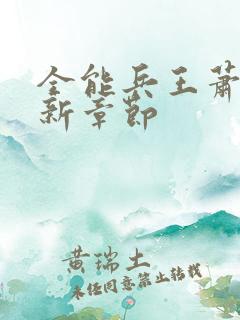 全能兵王萧
新章节
黄瑞土
未经同意禁止转载